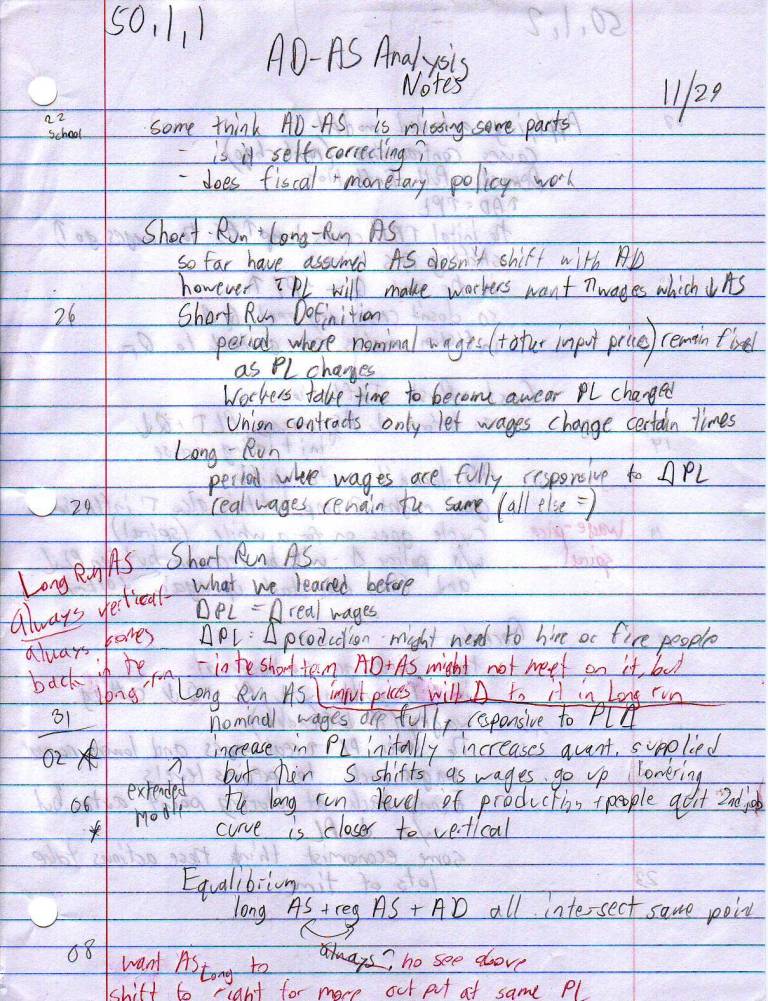 50,1,1
AD-AS Analysis
Notes
11/29
22
School
some think AD-AS is missing some parts
- is it self correcting?
- does fiscal + monetary policy work
Short-Run + Long-Run AS
so far have assumed AS doesn't shift with AD
however ↑PL will make workers want ↑wages which ↓AS
26
Short Run Definition
period where nominal wages (+other input prices) remain fixed
as PL changes
Workers take time to become awear PL changed
Union contracts only let wages change certain times
Long-Run
period where wages are fully responsive to ΔPL
29
real wages remain the same (all else =)
Short Run AS
what we learned before
ΔPL = Δ real wages
ΔPL = Δ production - might need to hire or fire people
Long Run AS
always vertical-
always comes
back in the
long-run
- in the short term AD+AS might not meet on it, but
input prices will Δ to it in Long run
Long Run AS
31
nominal wages are fully responsive to PLΔ
02 *
increase in PL initally increases quant. supplied
but then S shifts as wages go up lowering
06
*
extended
model
the long run level of production + people quit 2nd job
curve is closer to vertical
Equalibrium
long AS + reg AS + AD all intersect same point
always? no see above
08
want AS Long to
shift to right for more out put at same PL